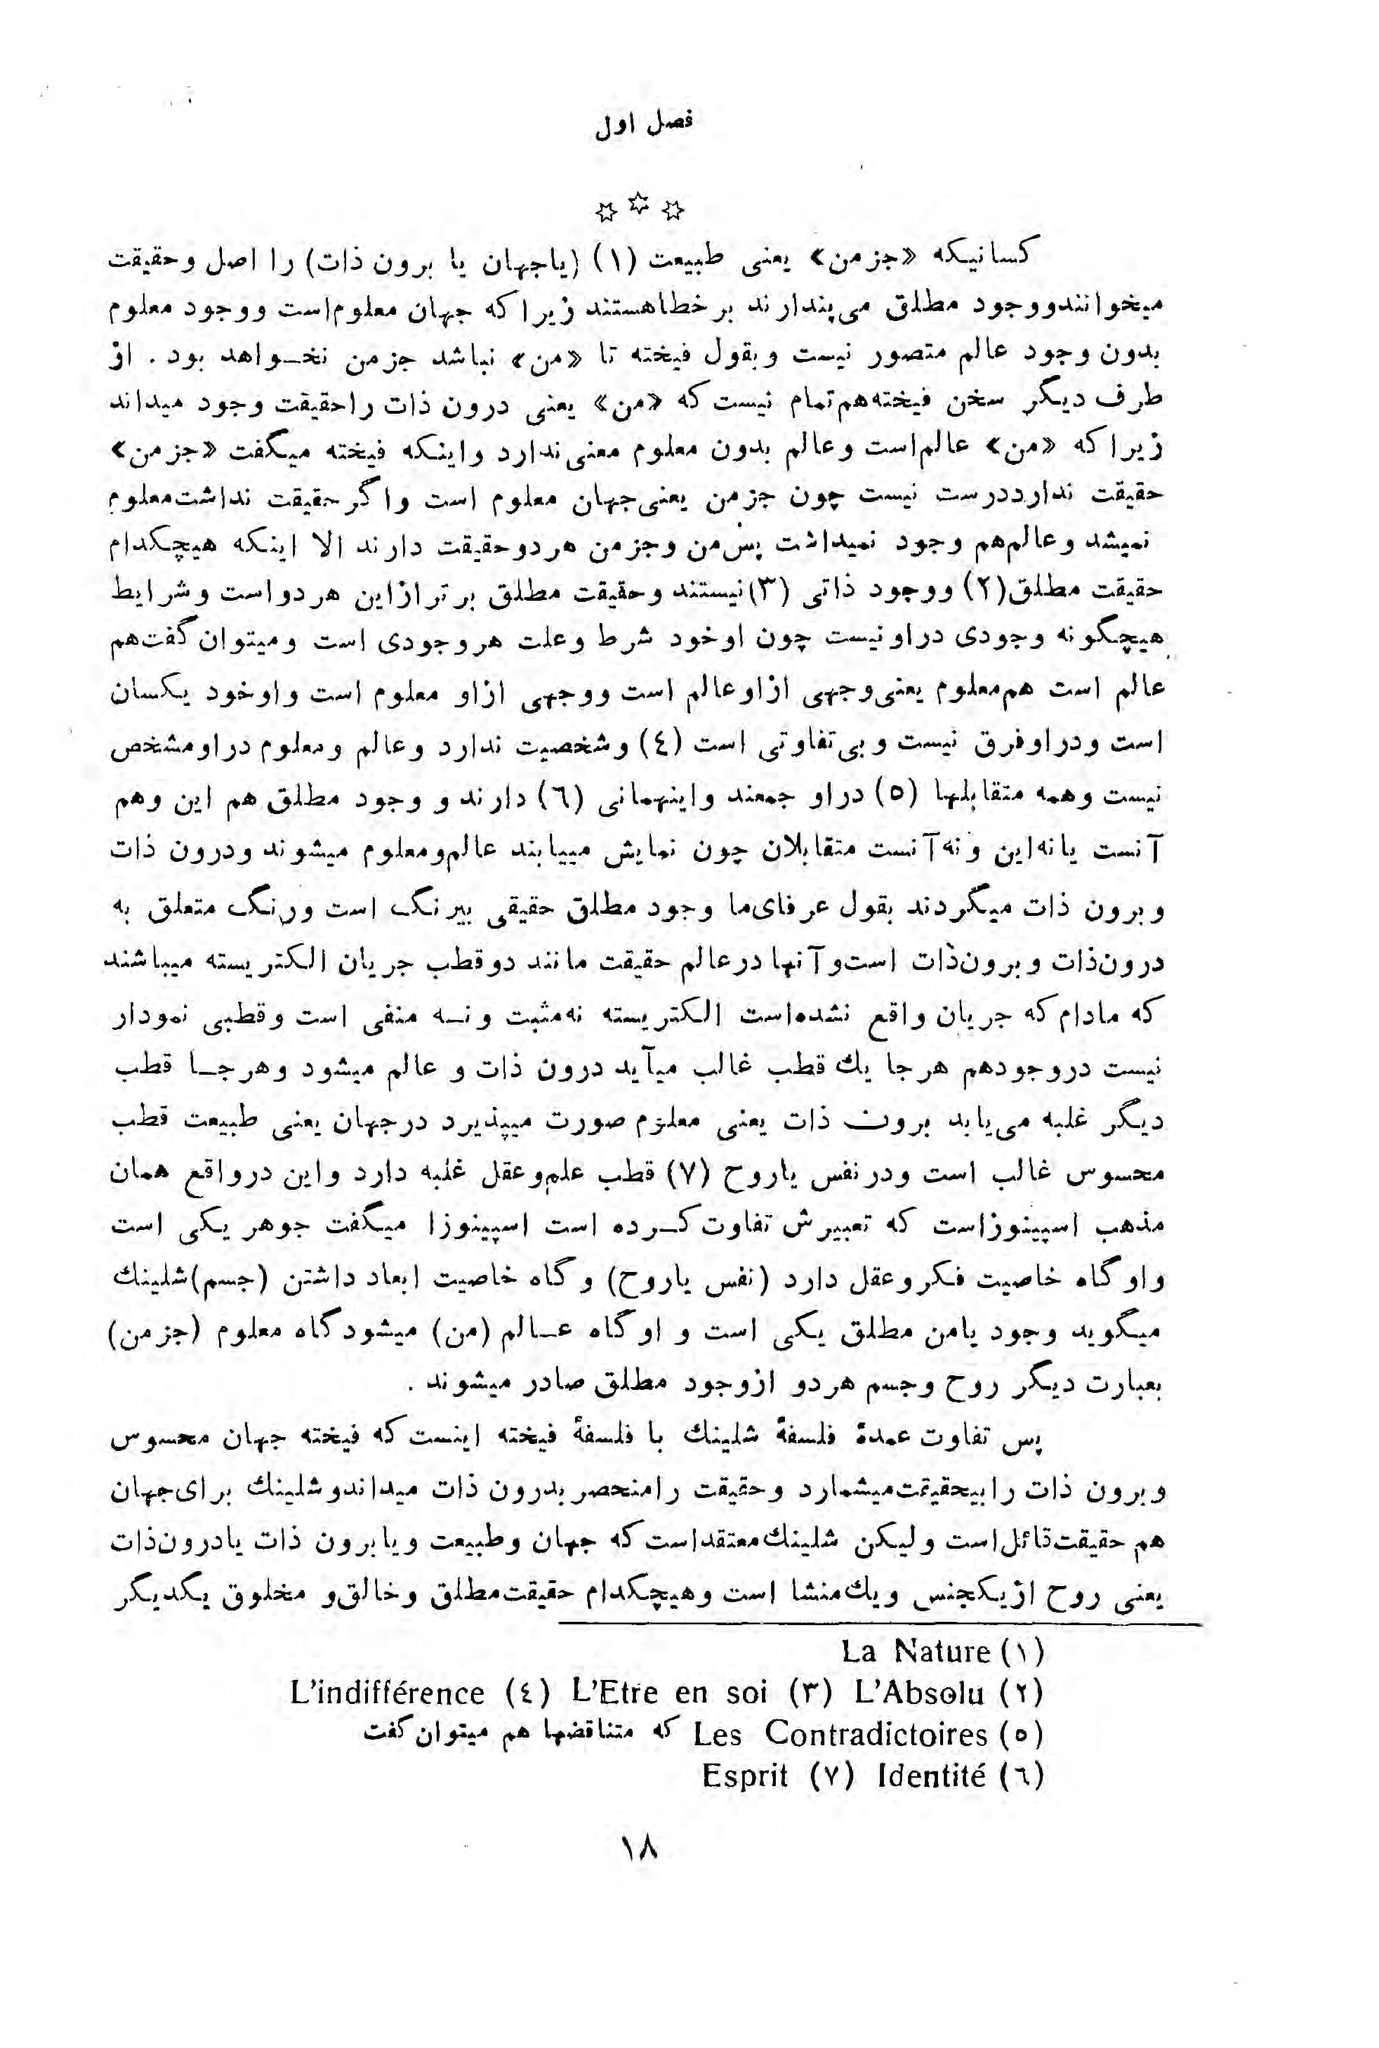 فصل اول
کسانیکه «جزمن» یعنی طبیعت (۱) (یاجهان یا برون ذات) را اصل وحقیقت
میخوانندووجود مطلق می‌پندارند برخطاهستند زیراکه جهان معلوم‌است ووجود معلوم
بدون وجود عالم متصور نیست وبقول فیخته تا «من» نباشد جزمن نخـواهد بود . از
طرف دیگر سخن فیخته‌هم‌تمام نیست‌که «من» یعنی درون ذات راحقیقت وجود میداند
زیراکه «من» عالم‌است وعالم بدون معلوم معنی‌ندارد واینکه فیخته میگفت «جزمن»
حقیقت ندارددرست نیست چون جزمن یعنی‌جهان معلوم است واگرحقیقت نداشت‌معلوم
نمیشد وعالم‌هم وجود نمیداشت پس‌من وجزمن هردوحقیقت دارند الا اینکه هیچکدام
حقیقت مطلق(۲) ووجود ذاتی (۳)نیستند وحقیقت مطلق برترازاین هردواست وشرایط
هیچگونه وجودی دراونیست چون اوخود شرط وعلت هروجودی است ومیتوان گفت‌هم
عالم است هم‌معلوم یعنی‌وجهی ازاوعالم است ووجهی ازاو معلوم است واوخود یکسان
است ودراوفرق نیست وبی‌تفاوتی است (٤) وشخصیت ندارد وعالم ومعلوم دراومشخص
نیست وهمه متقابلها (٥) دراو جمعند واینهمانی (٦) دارند و وجود مطلق هم این وهم
آنست یانه‌این ونه‌آنست متقابلان چون نمایش مییابند عالم‌ومعلوم میشوند ودرون ذات
وبرون ذات میگردند بقول عرفای‌ما وجود مطلق حقیقی بیرنگ است ورنگ متعلق به
درون‌ذات وبرون‌ذات است‌وآنها درعالم حقیقت مانند دوقطب جریان الکتریسته میباشند
که مادام‌که جریان واقع نشده‌است الکتریسته نه‌مثبت ونـه منفی است وقطبی نمودار
نیست دروجودهم هرجا یك قطب غالب میآید درون ذات و عالم میشود وهرجـا قطب
دیگر غلبه می‌یابد برون ذات یعنی معلوم صورت میپذیرد درجهان یعنی طبیعت قطب
محسوس غالب است ودرنفس یاروح (۷) قطب علم‌وعقل غلبه دارد واین درواقع همان
مذهب اسپینوزاست که تعبیرش تفاوت‌کـرده است اسپینوزا میگفت جوهر یکی است
واوگاه خاصیت فکروعقل دارد (نفس یاروح) وگاه خاصیت ابعاد داشتن (جسم)شلینك
میگوید وجود یامن مطلق یکی است و اوگاه عـالم (من) میشودگاه معلوم (جزمن)
بعبارت دیگر روح وجسم هردو ازوجود مطلق صادر میشوند .
پس تفاوت عمدهٔ فلسفهٔ شلینك با فلسفهٔ فیخته اینست‌که فیخته جهان محسوس
وبرون ذات رابیحقیقت‌میشمارد وحقیقت رامنحصربدرون ذات میداندوشلینك برای‌جهان
هم حقیقت‌قائل‌است ولیکن شلینك‌معتقداست‌که جهان وطبیعت ویابرون ذات یادرون‌ذات
یعنی روح ازیکجنس ویك‌منشا است وهیچکدام حقیقت‌مطلق وخالق‌و مخلوق یکدیگر
(۱) La Nature
(۲) L'Absolu (۳) L'Etre en soi (٤) L'indifférence
(٥) Les Contradictoires که متناقضها هم میتوان‌گفت
(٦) Identité (۷) Esprit
۱۸